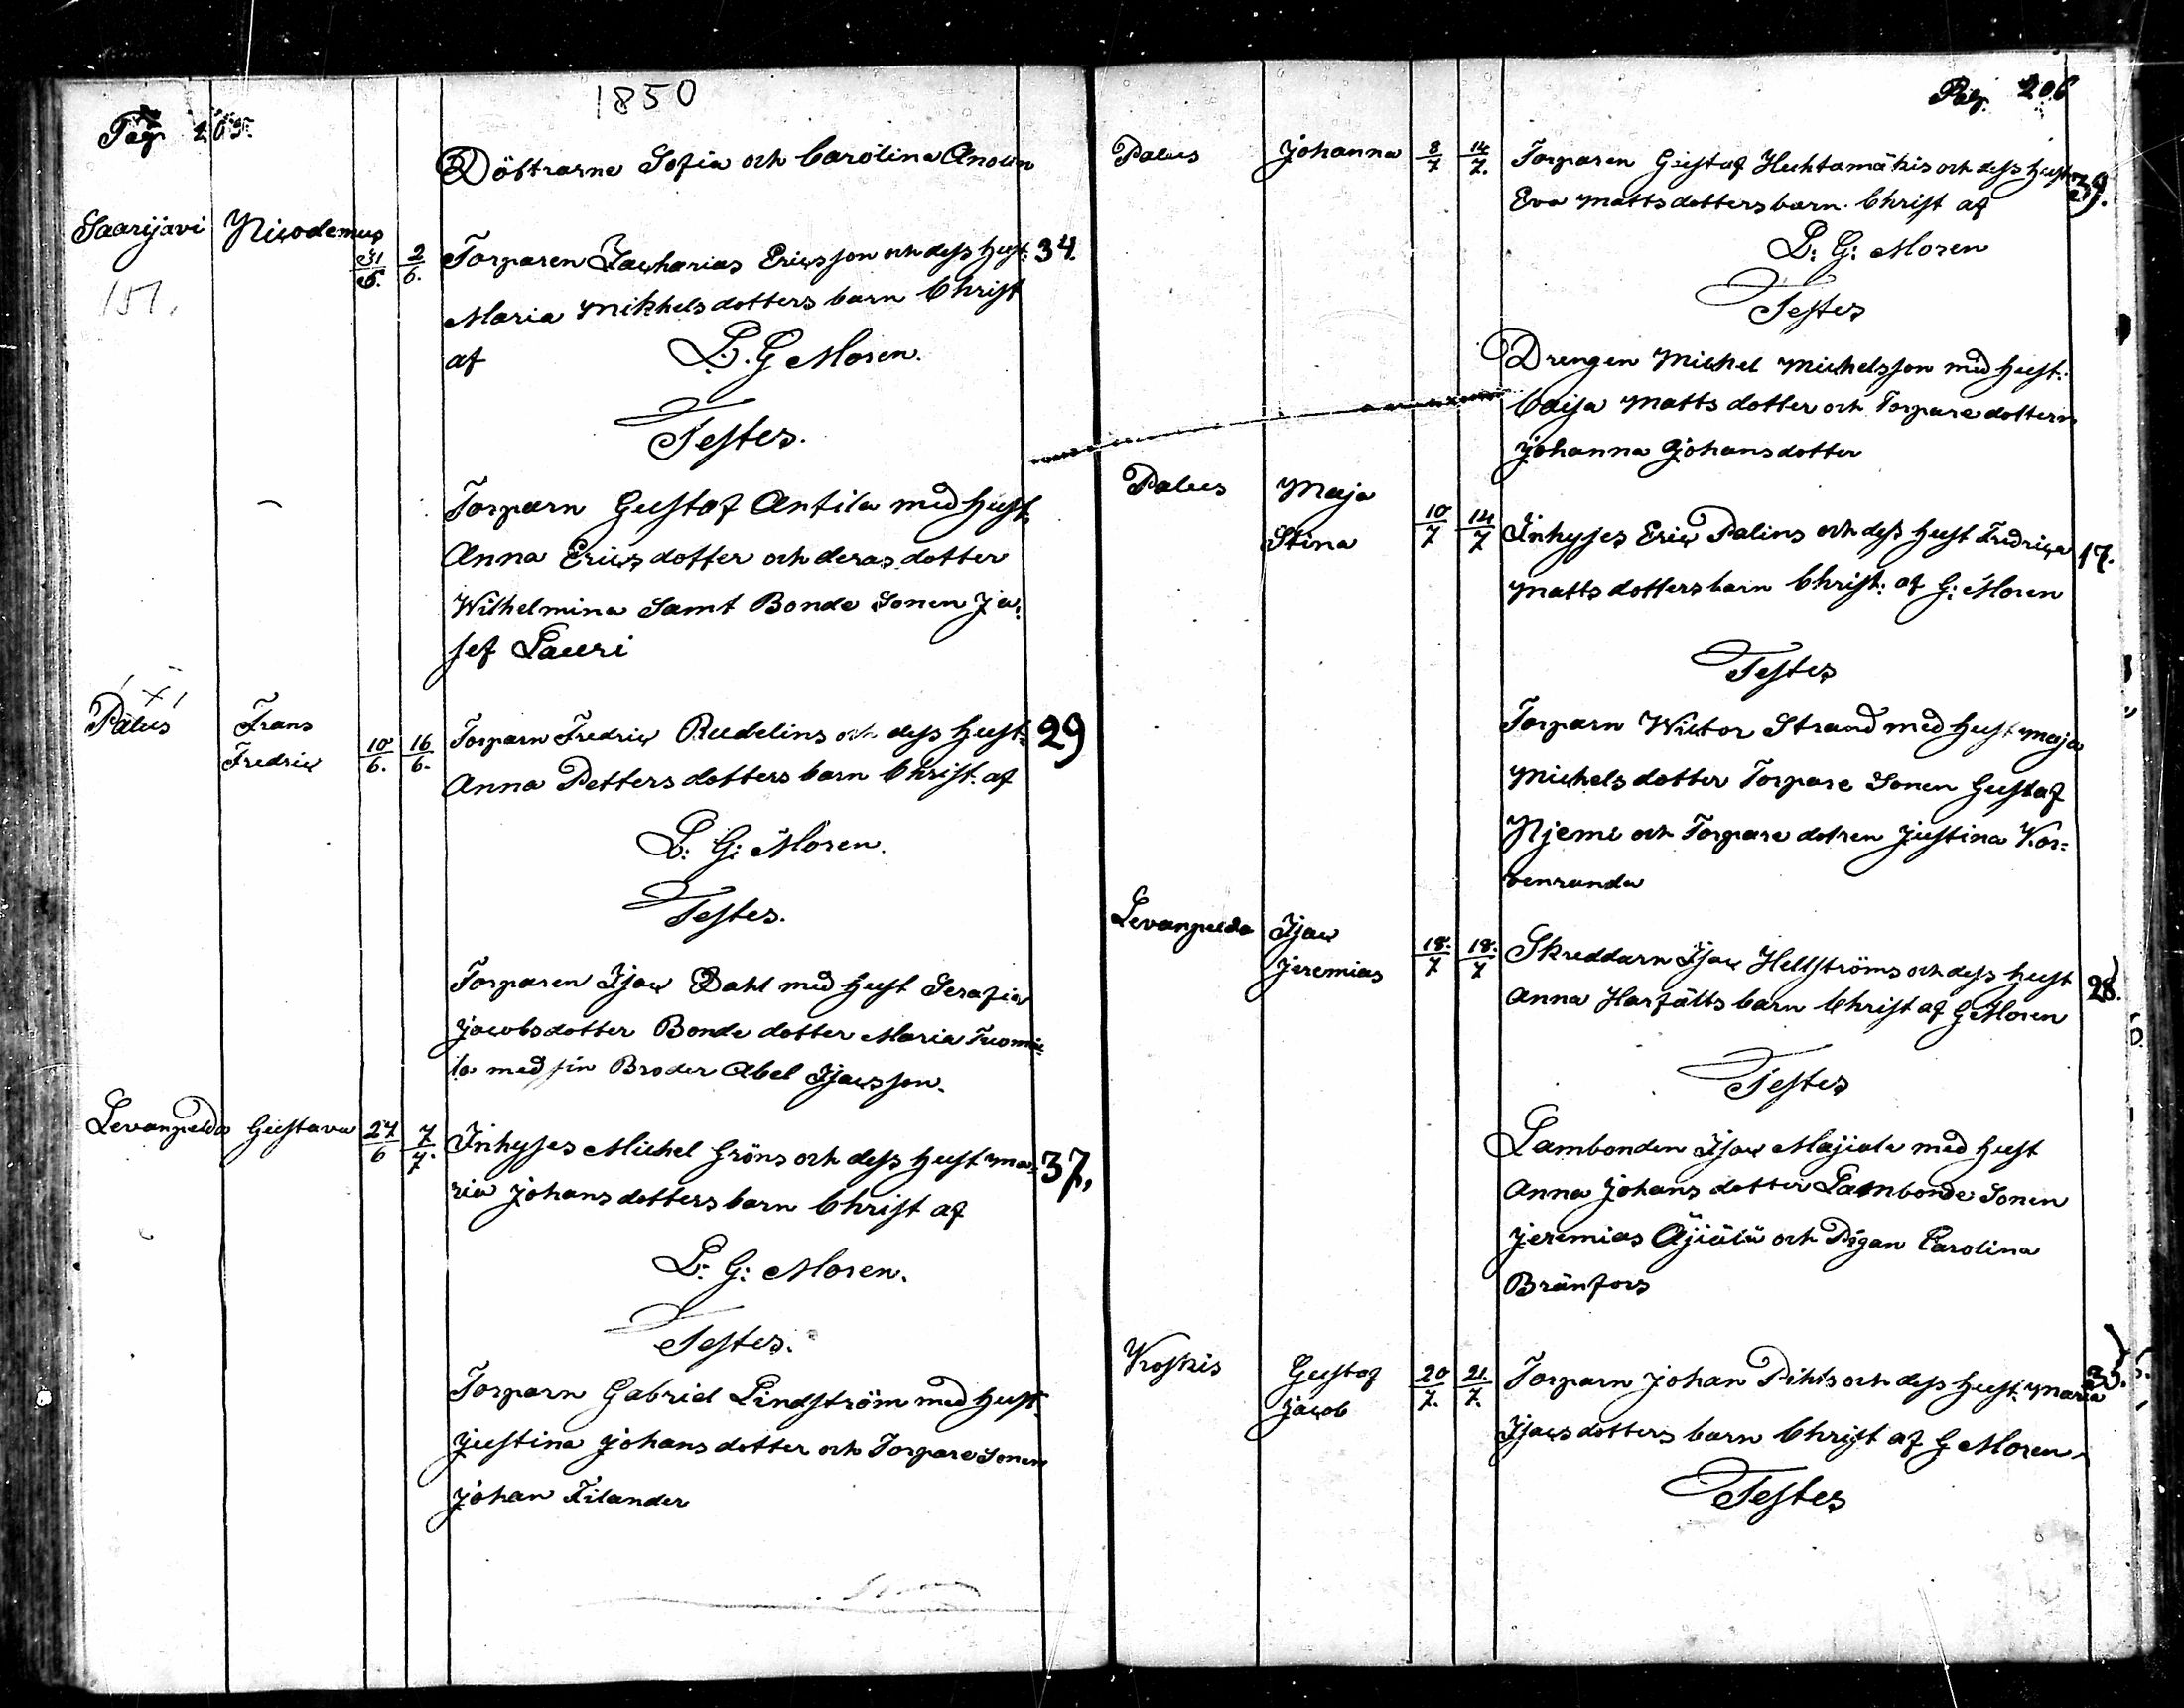 1850
Pag. 205.
Döttrarne Sofia och Carolina Anolin
Saarijävi Nicodemus 31/5. 2/6. Torparen Zacharias Ericsson och dess Hust: 34.
151.
Maria Mikkelsdotters barn Christ
af L. G Moren.
Testes.
Torparn Gustaf Antila med Hust:
Anna Ericsdotter och deras dotter
Wilhelmina Samt Bonde Sonen Jo-
sef Lauri
Palus Frans Fredric 10/6. 16/6. Torparn Fredric Rudelins och dess Hust: 29
Anna Pettersdotters barn Christ. af
L: G: Moren.
Testes.
Torparen Isac Dahl med Hust Serafia
Jacobsdotter Bonde dotter Maria Tuomi-
la med sin Broder Abel Isacsson.
Levanpelda Gustava 27/6 7/7. Inhyses Michel Gröns och dess Hust Ma- 37,
ria Johansdotters barn Christ af
L: G: Moren.
Testes.
Torparn Gabriel Lindström med Hust:
Justina Johansdotter och Torpare Sonen
Johan Filander
Pag. 206
Palus Johanna 8/7 14/7. Torparen Gustaf Huhtamäkis och dess Hust 39.
Eva Mattsdotters barn Christ af
L: G: Moren
Testes
Drengen Michel Michelsson med Hust:
Caisa Matts dotter och Torpare dottern
Johanna Johansdotter
Palus Maja Stina 10/7 14/7 Inhyses Eric Palins och dess Hust Fredrica 17.
Mattsdotters barn Christ: af G: Moren
Testes
Torparn Wictor Strand med Hust Maja
Michelsdotter Torpare Sonen Gustaf
Njemi och Torpare dotren Justina Kor-
venranda
Levanpelda Isac Jeremias 18./7 18./7 Skreddarn Isac Hellströms och dess Hust 28.
Anna Harfälts barn Christ af G Moren
Testes
Lambonden Isac Majiala med Hust
Anna Johans dotter Lambonde Sonen
Jeremias Äjiälä och Pigan Carolina
Bränfors
Kroskis Gustaf Jacob 20/7. 21./7. Torparn Johan Pihls och dess Hust. Maria 35.
Isacsdotters barn Christ af G Moren
Testes